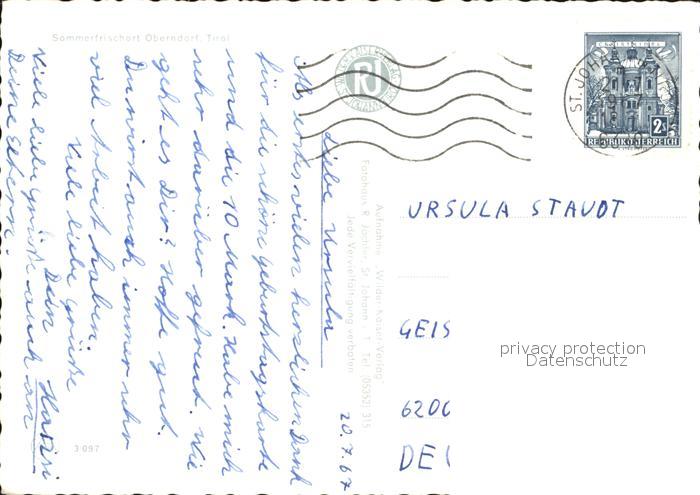 Sommerfrischort Oberndorf, Tirol
20.7.67
Liebe Ursula
Als erstes vielen herzlichen Dank
für die schöne Geburtstagskarte
und die 10 Mark. Habe mich
sehr darüber gefreut. Wie
geht es Dir? Hoffe gut.
Du wirst auch immer sehr
viel Arbeit haben.
Viele liebe Grüße
Dein
Viele liebe Grüße auch an
Deine Eltern.
3097
Aufnahme Wilder-Kaiser-Verlag
Fotohaus R. Jöchler St. Johann T. Tel. (05352) 315
Jede Vervielfältigung verboten
RJ
ST. JOHANN
CHRISTKINDL
2S
REPUBLIK ÖSTERREICH
URSULA STAUDT
GEIS
6200
DE
privacy protection
Datenschutz